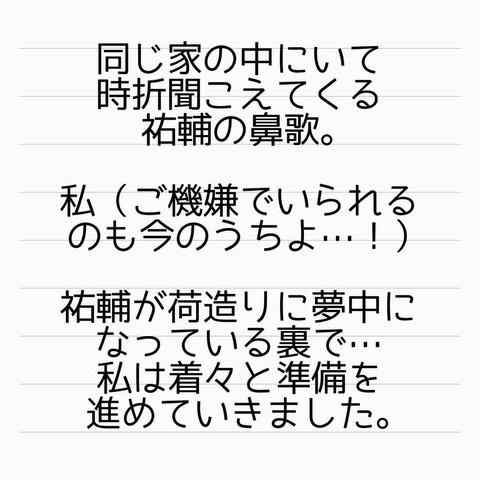 同じ家の中にいて
時折聞こえてくる
祐輔の鼻歌。
私（ご機嫌でいられる
のも今のうちよ…！）
祐輔が荷造りに夢中に
なっている裏で…
私は着々と準備を
進めていきました。